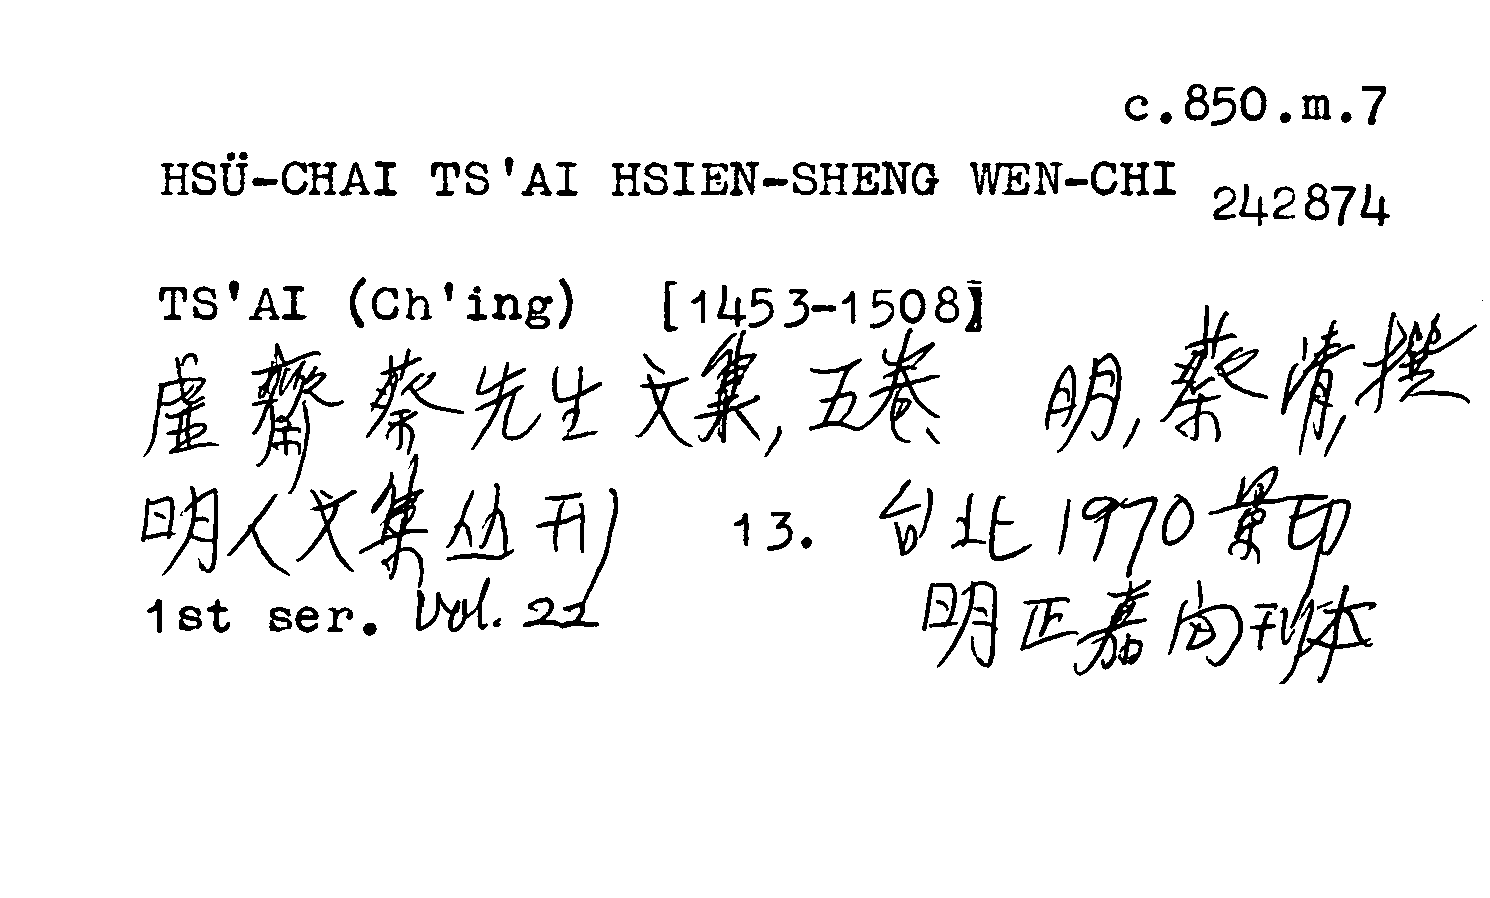 c.850.m.7
HSÜ-CHAI TS'AI HSIEN-SHENG WEN-CHI 242874
TS'AI (Ch'ing) [1453-1508]
虚齋蔡先生文集, 五卷、 明, 蔡清, 撰
明人文集丛刊 13. 台北 1970 景印
1st ser. Vol. 22 明正嘉间刊本